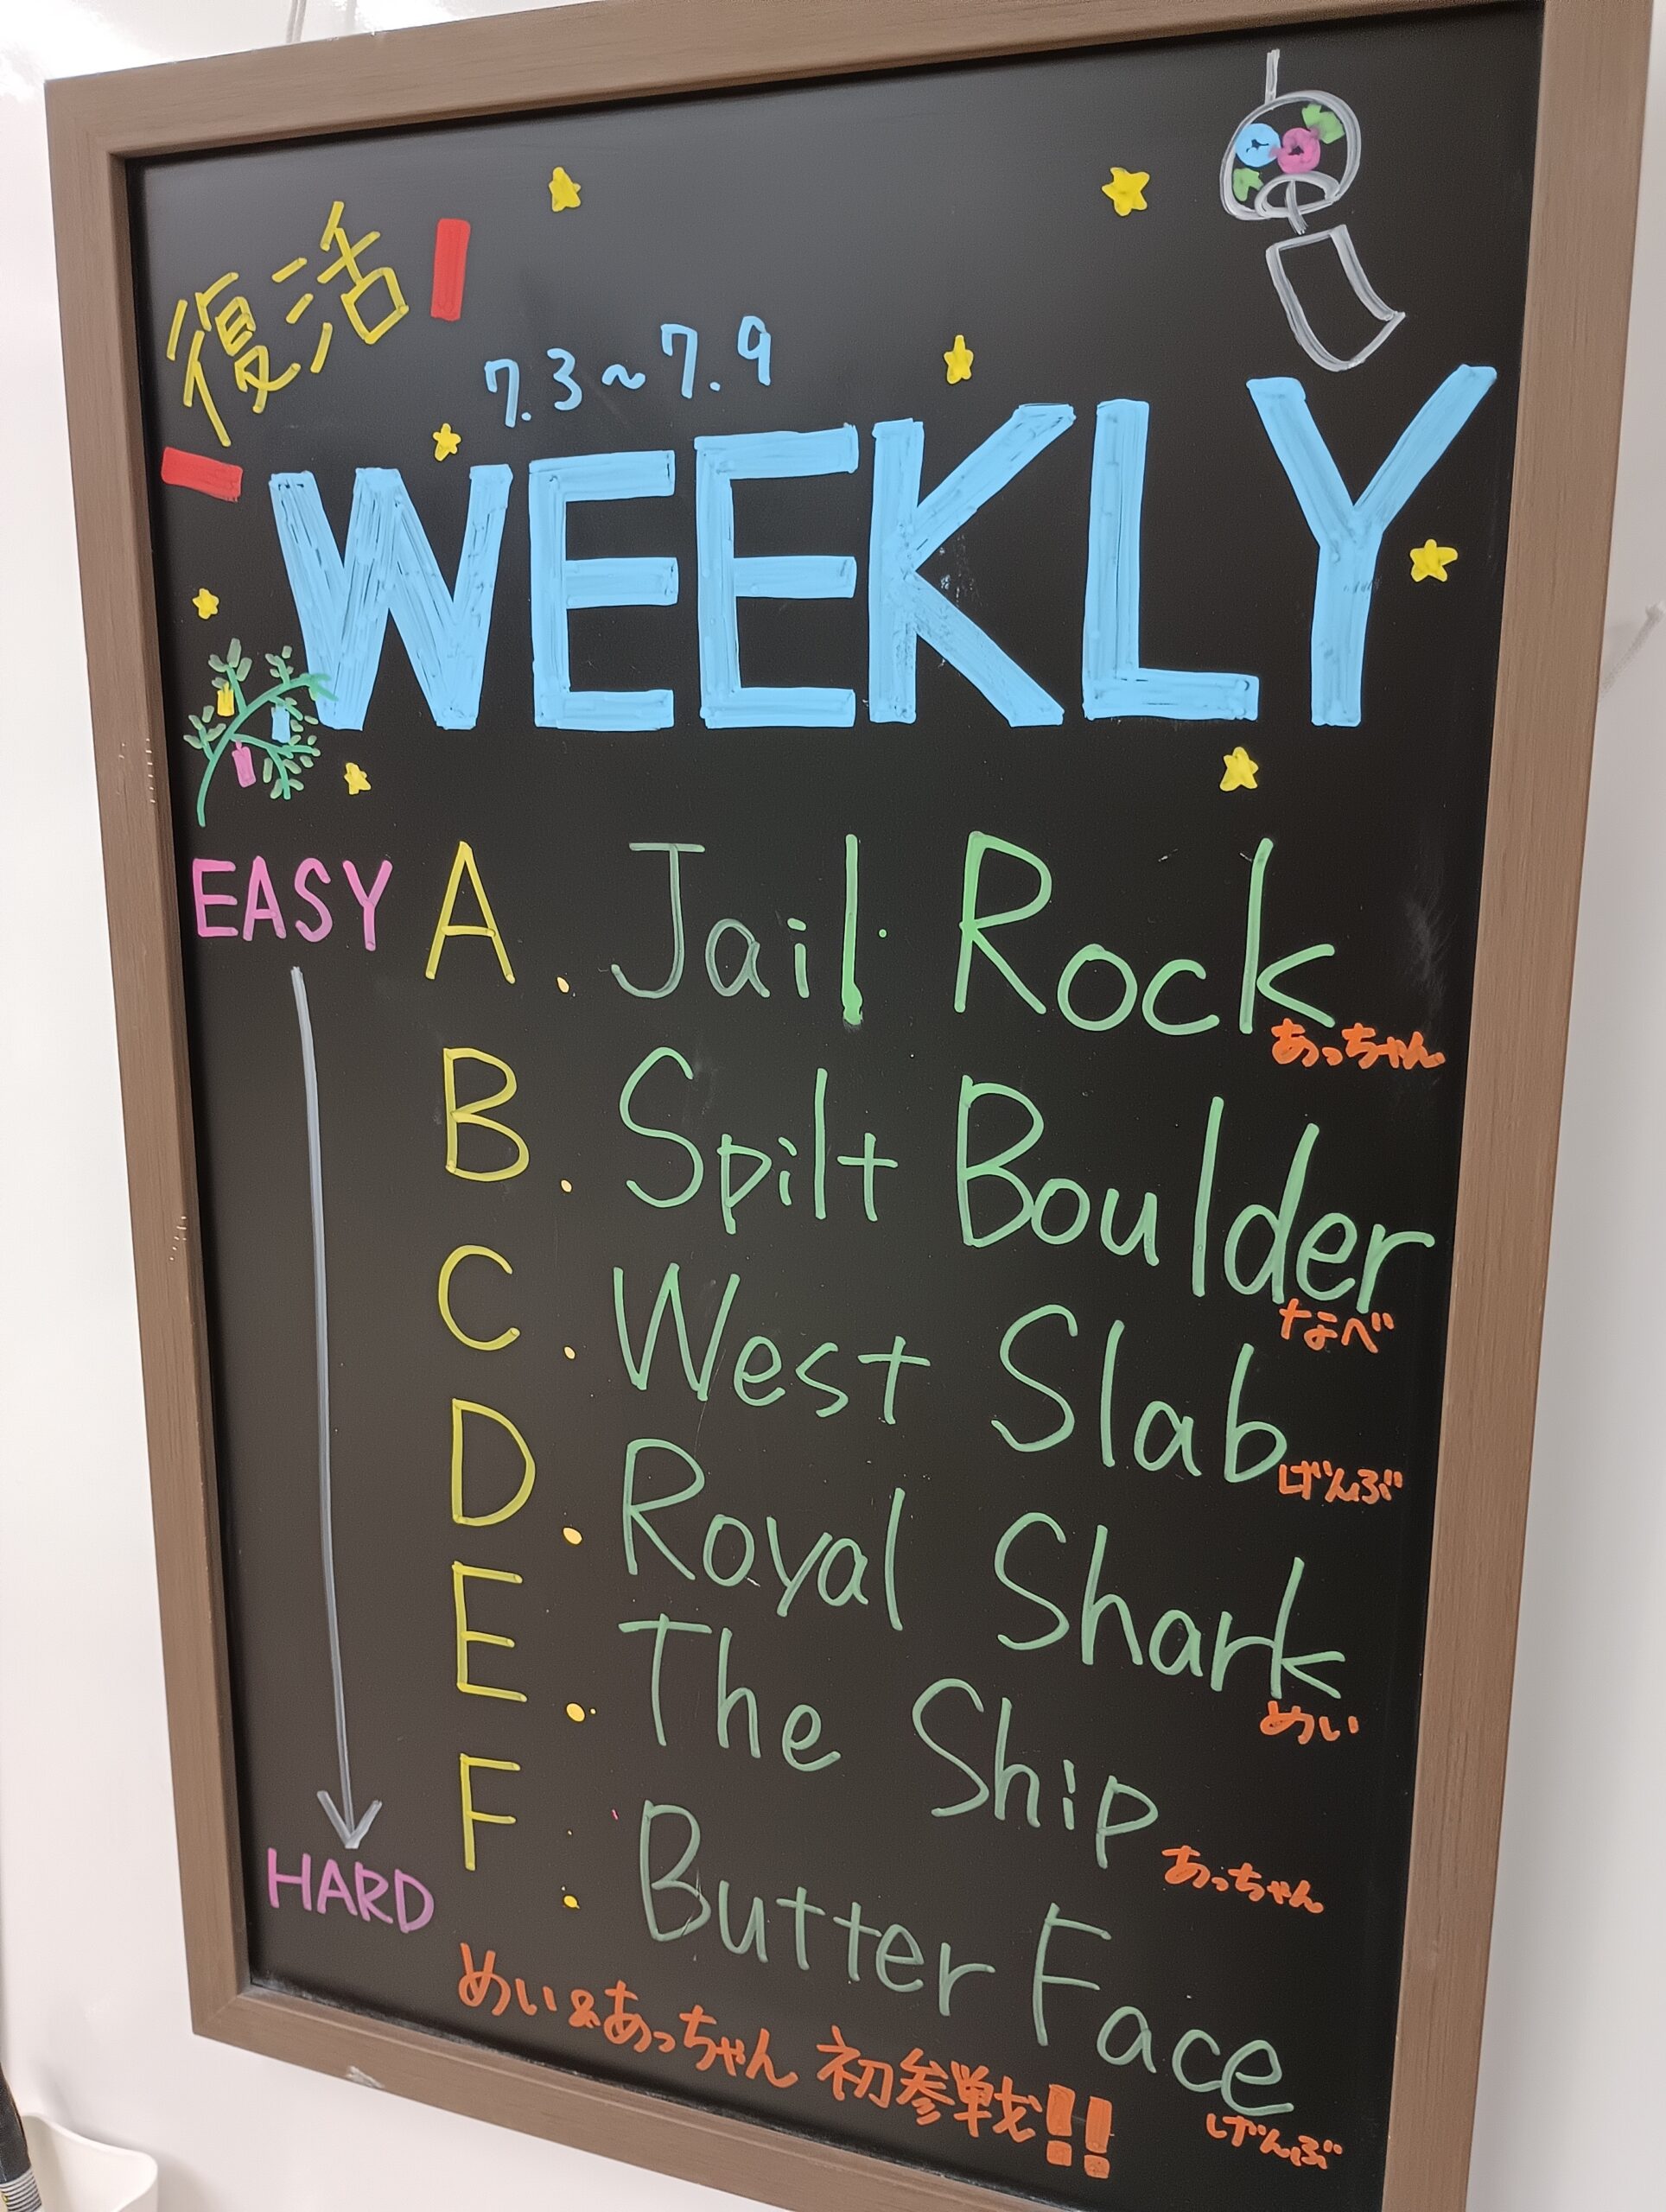 復活
7.3~7.9
WEEKLY
EASY
A. Jail Rock
あっちゃん
B. Spilt Boulder
なべ
C. West Slab
げんぶ
D. Royal Shark
めい
E. The Ship
あっちゃん
F. Butter Face
げんぶ
HARD
めい&あっちゃん 初参戦!!